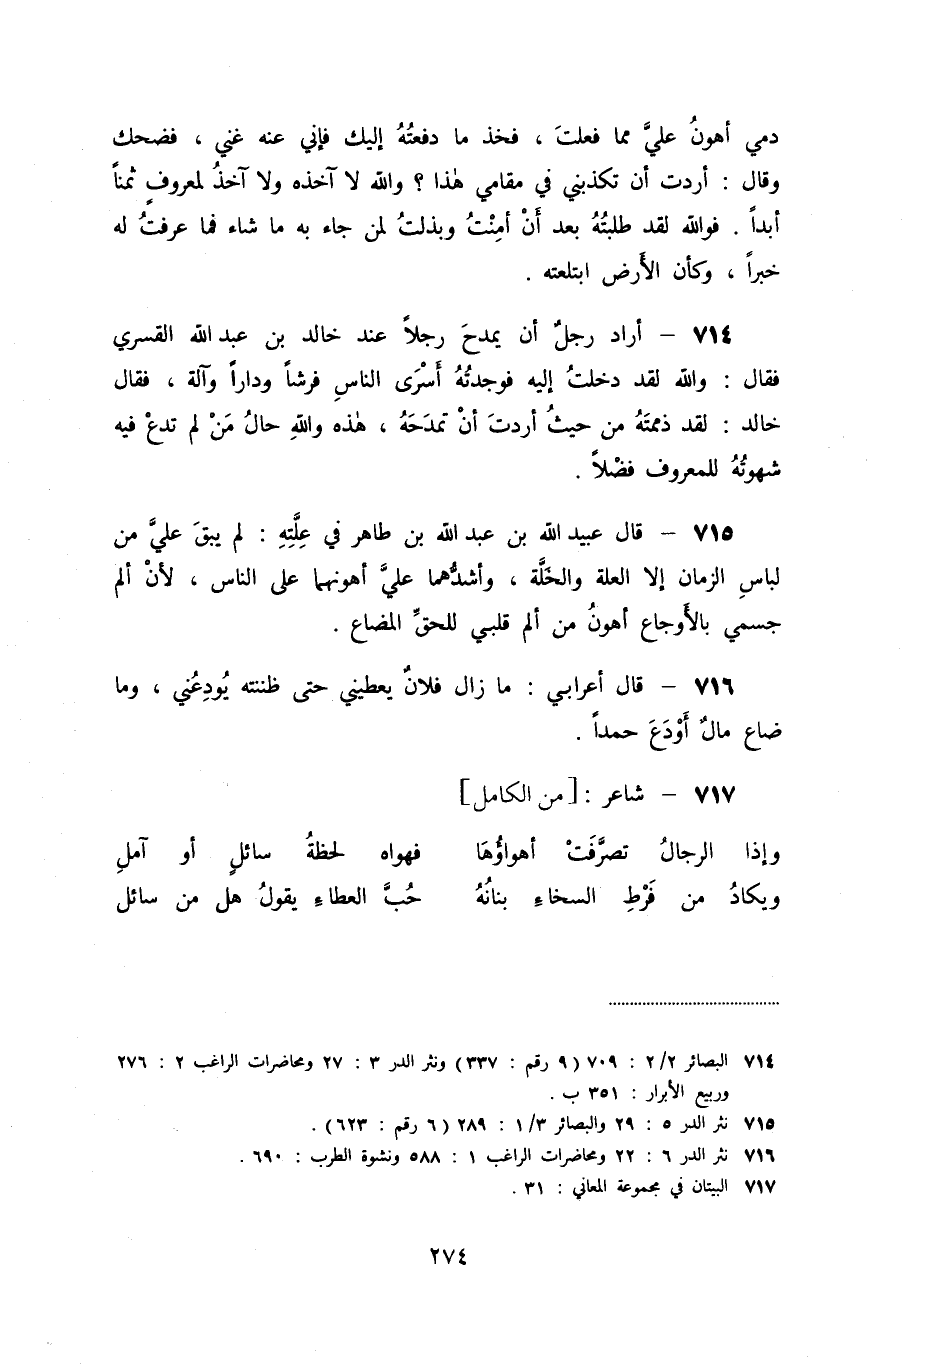 دمي أهونُ عليَّ مما فعلتَ ، فخذ ما دفعتُهُ إليك فإني عنه غني ، فضحك
وقال : أردت أن تكذبني في مقامي هٰذا ؟ والله لا آخذه ولا آخذُ لمعروفٍ ثمناً
أبداً . فوالله لقد طلبتُهُ بعد أَنْ أمِنْتُ وبذلتُ لمن جاء به ما شاء فما عرفتُ له
خبراً ، وكأن الأَرض ابتلعته .
٧١٤ – أراد رجلٌ أن يمدحَ رجلاً عند خالد بن عبد الله القسري
فقال : والله لقد دخلتُ إليه فوجدتُهُ أَسْرَى الناسِ فرشاً وداراً وآلة ، فقال
خالد : لقد ذممتَهُ من حيثُ أردتَ أنْ تمدَحَهُ ، هٰذه واللهِ حالُ مَنْ لم تدعْ فيه
شهوتُهُ للمعروف فضْلاً .
٧١٥ – قال عبيد الله بن عبد الله بن طاهر في عِلَّتِهِ : لم يبقَ عليَّ من
لباسِ الزمان إلا العلة والخَلَّة ، وأشدُّهما عليَّ أهونهما على الناس ، لأنْ ألم
جسمي بالأَوجاع أهونُ من ألم قلبي للحقِّ المضاع .
٧١٦ – قال أعرابي : ما زال فلانٌ يعطيني حتى ظننته يُودِعُني ، وما
ضاع مالٌ أَوْدَعَ حمداً .
٧١٧ – شاعر : [من الكامل]
وإذا الرجالُ تصرَّفَتْ أهواؤُهَا فهواه لحظةُ سائلٍ أو آملِ
ويكادُ من فَرْطِ السخاءِ بنانُهُ حُبَّ العطاءِ يقولُ هل من سائل
٧١٤ البصائر ٢/٢ : ٧٠٩ (٩ رقم : ٣٣٧) ونثر الدر ٣ : ٢٧ ومحاضرات الراغب ٢ : ٢٧٦
وربيع الأبرار : ٣٥١ ب .
٧١٥ نثر الدر ٥ : ٢٩ والبصائر ١/٣ : ٢٨٩ (٦ رقم : ٦٢٣) .
٧١٦ نثر الدر ٦ : ٢٢ ومحاضرات الراغب ١ : ٥٨٨ ونشوة الطرب : ٦٩٠ .
٧١٧ البيتان في مجموعة المعاني : ٣١ .
٢٧٤